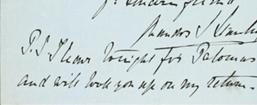 Sincere friend
S. S.
P.S I leave tonight for Palomas
and will look you up on my return.